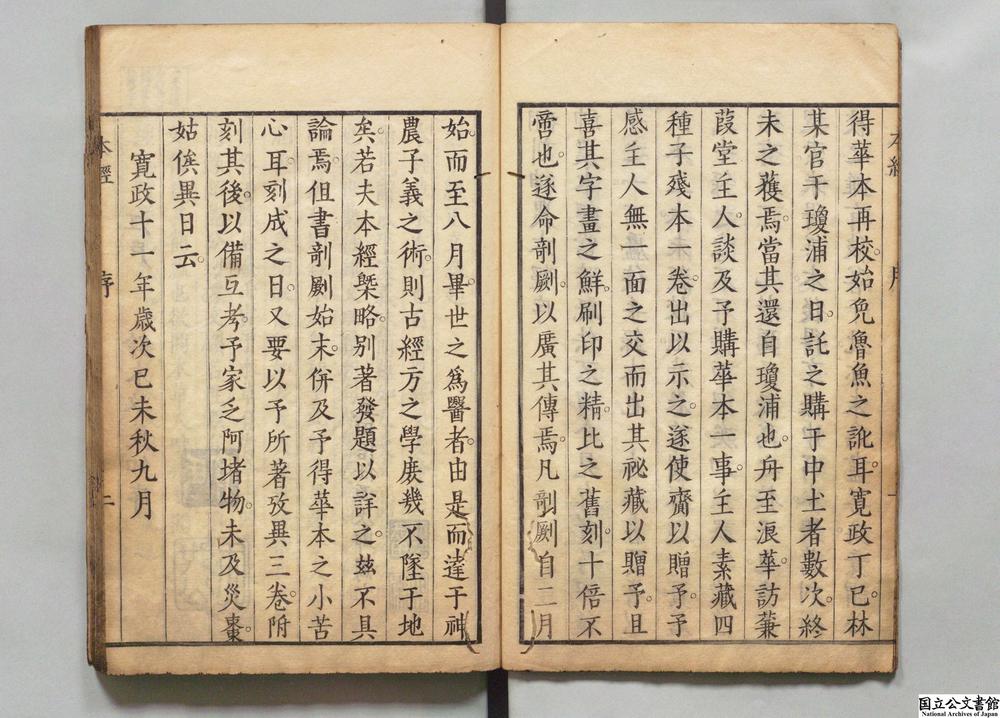 得華本再校。始免魯魚之訛耳。寬政丁巳。林
某官于瓊浦之日。託之購于中土者數次。終
未之獲焉。當其還自瓊浦也。舟至浪華。訪蒹
葭堂主人。談及予購華本一事。主人素藏四
種子殘本一卷。出以示之。遂使齎以贈予。予
感主人無一面之交而出其祕藏以贈予。且
喜其字畫之鮮。刷印之精。比之舊刻。十倍不
啻也。遂命剞劂。以廣其傳焉。凡剞劂自二月
始。而至八月畢。世之為醫者。由是而達于神
農子義之術。則古經方之學。庶幾不墜于地
矣。若夫本經槩略。別著發題以詳之。茲不具
論焉。但書剞劂始末。併及予得華本之小苦
心耳。刻成之日。又要以予所著攷異三卷。附
刻其後。以備互考。予家乏阿堵物。未及災棗。
姑俟異日云。
寬政十一年歲次己未秋九月
本經
序
一
本經
序
二
国立公文書館
National Archives of Japan